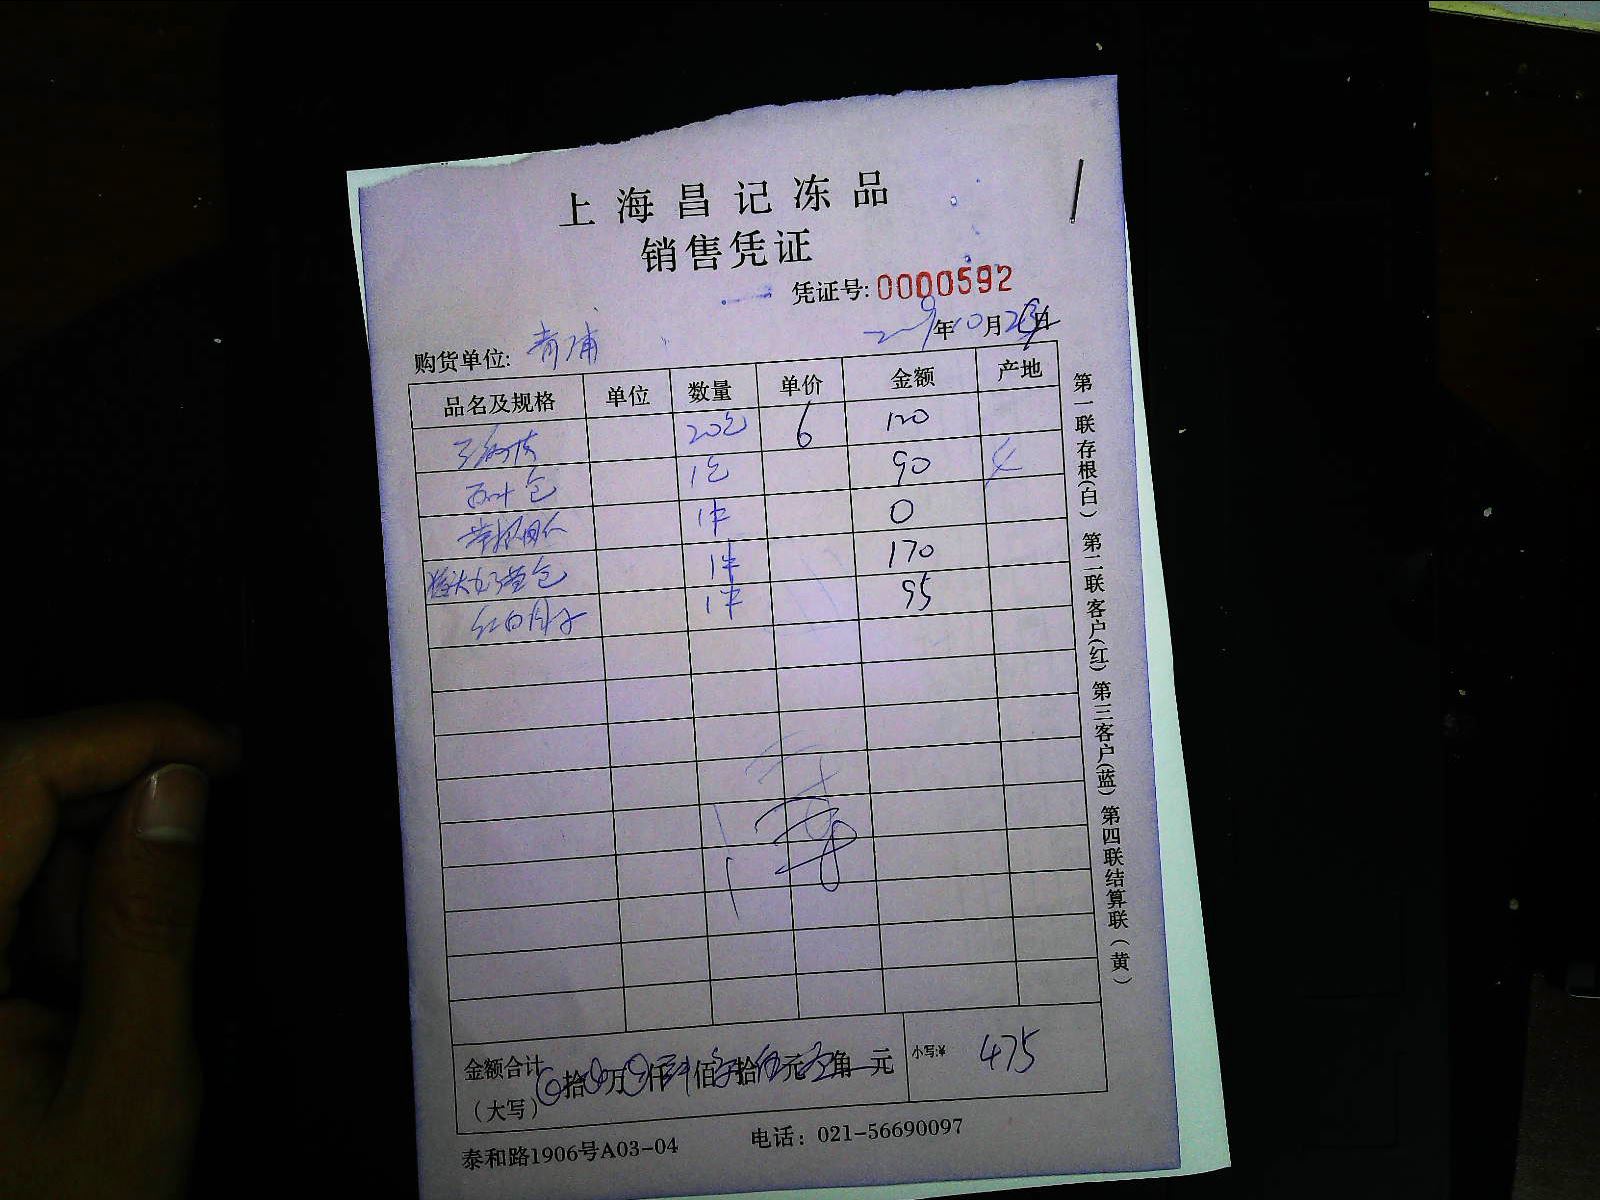 上海昌记冻品
销售凭证
凭证号: 0000592
购货单位: 青浦 2009年10月2日
品名及规格 单位 数量 单价 金额 产地
20包 6 120
包 1包 90
1件 0
特大奶黄包 1件 170
红白月子 1件 95
金额合计 拾 万 仟 肆佰 柒拾 伍元 角 元 小写:¥ 475
(大写)
泰和路1906号A03-04 电话: 021-56690097
第一联存根(白) 第二联客户(红) 第三客户(蓝) 第四联结算联(黄)